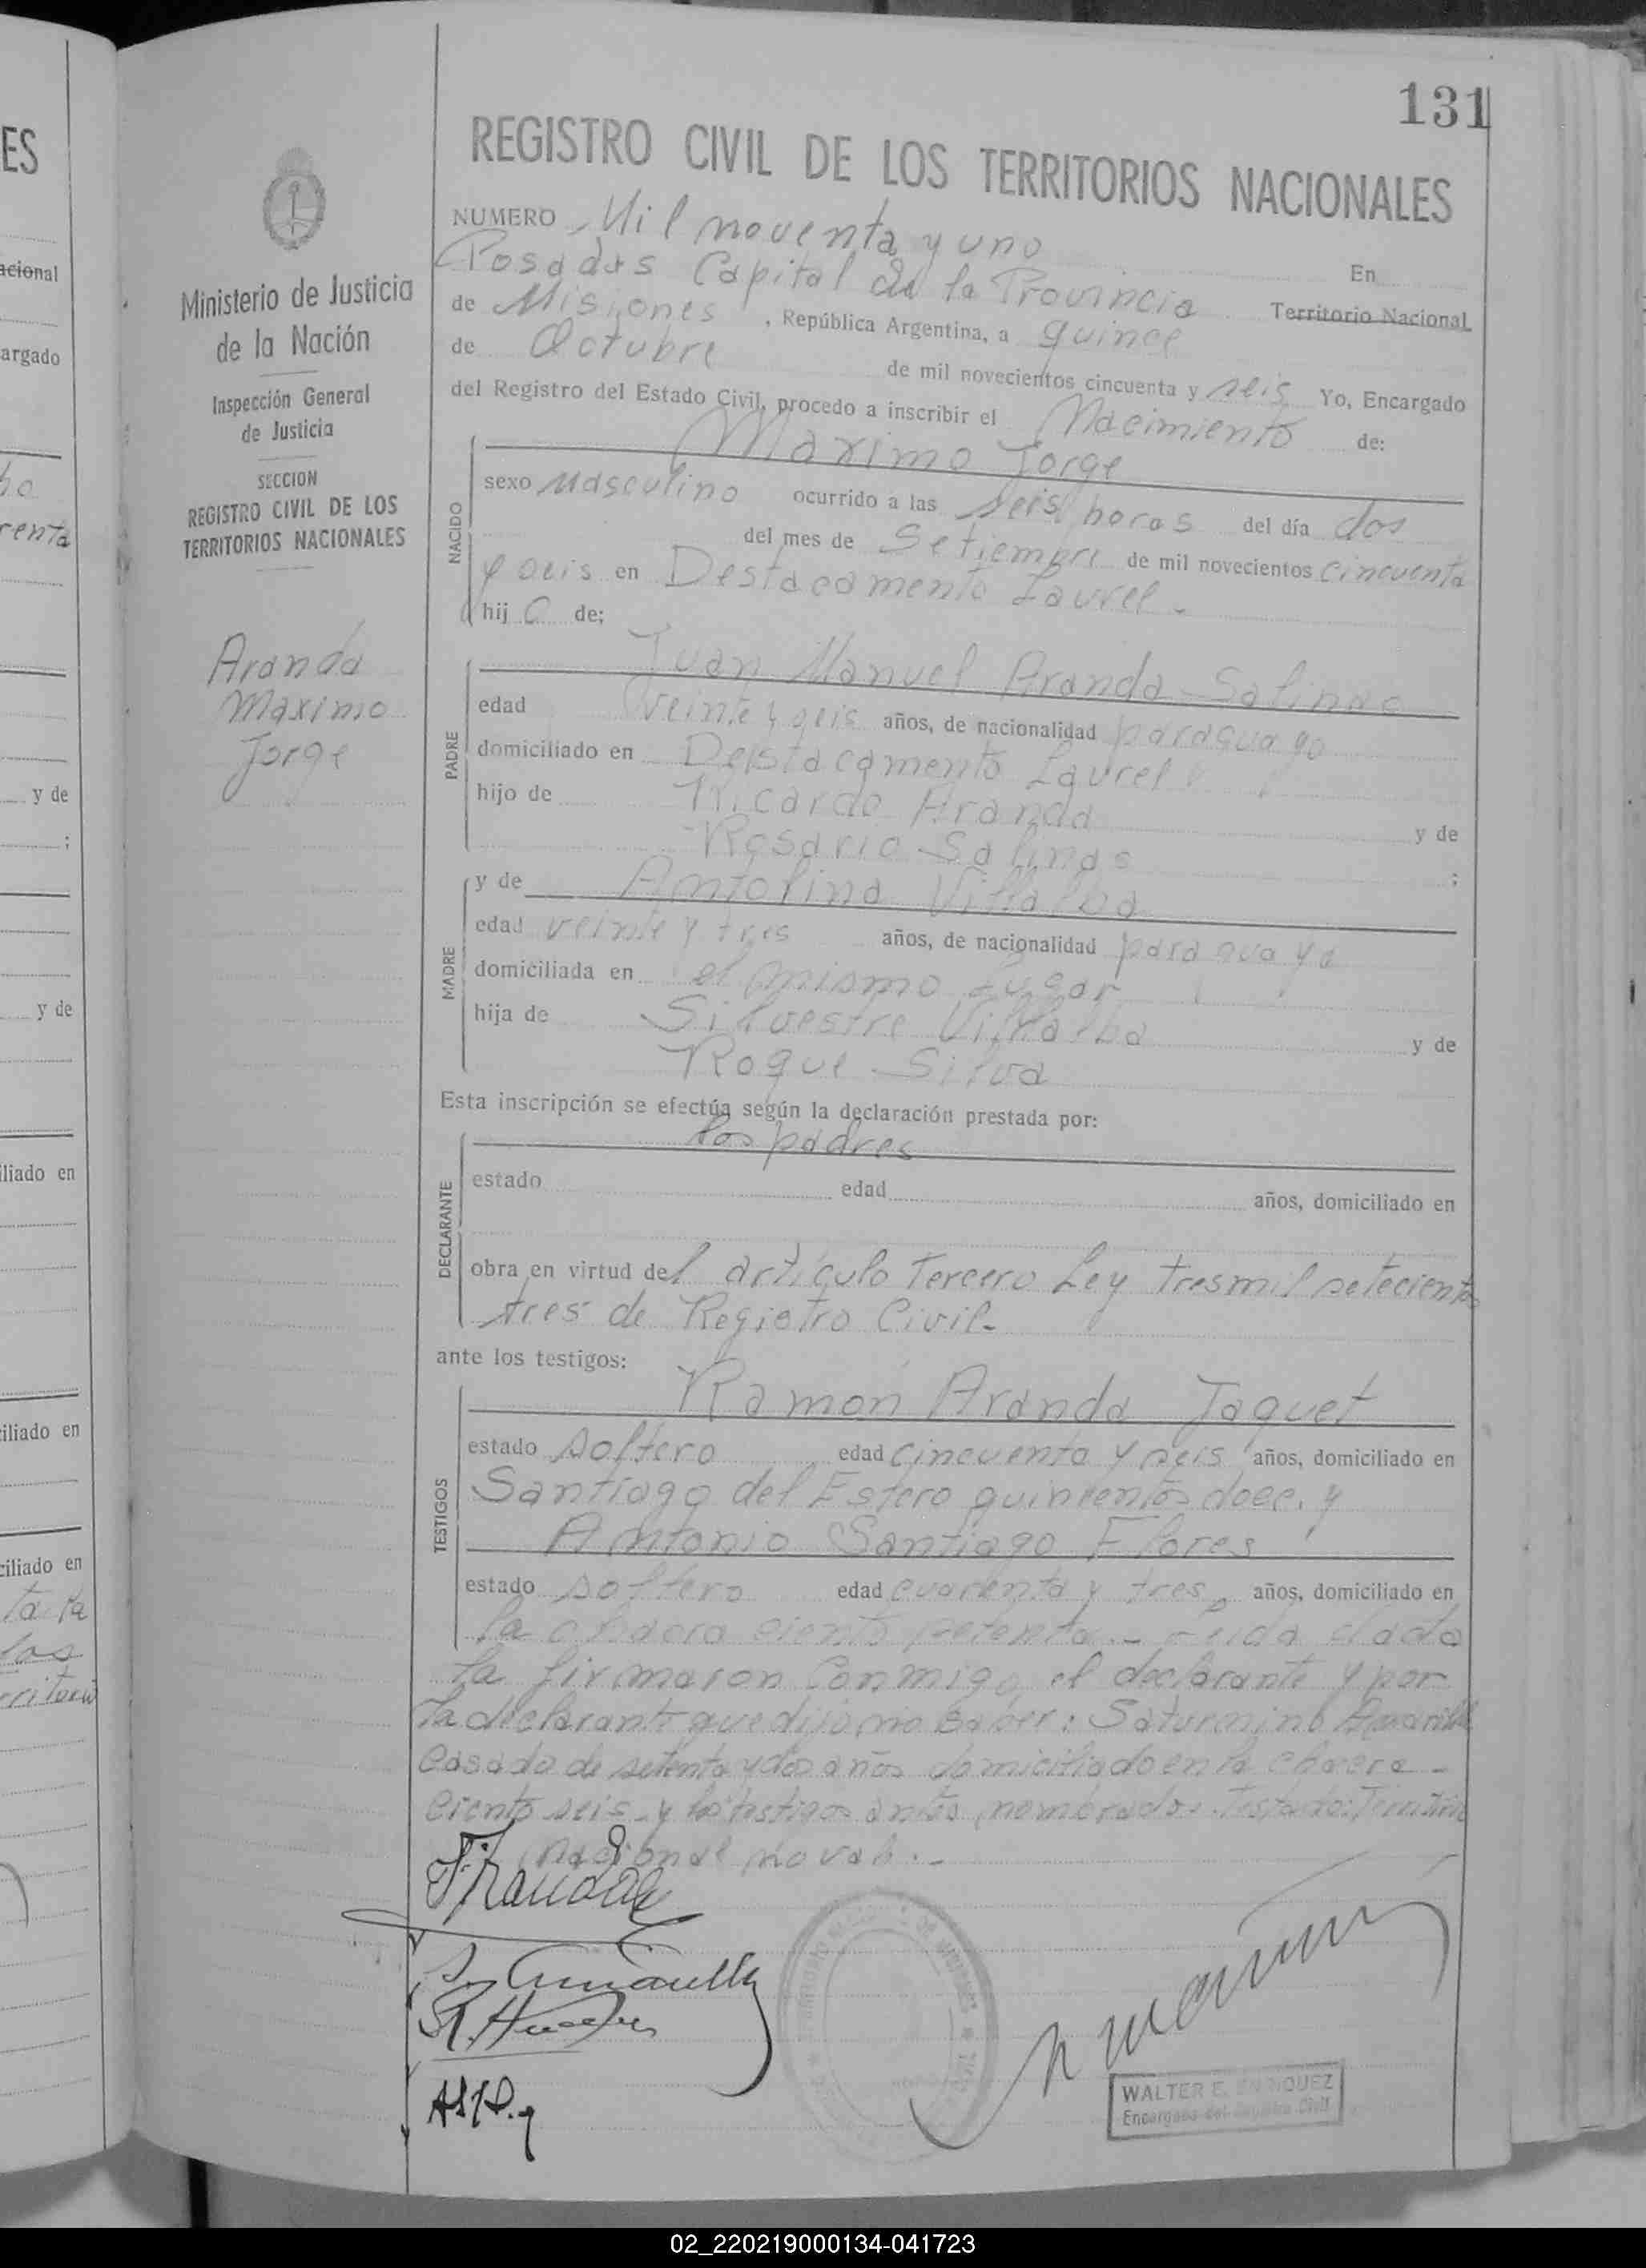 131
REGISTRO CIVIL DE LOS TERRITORIOS NACIONALES
Ministerio de Justicia
de la Nación
Inspección General
de Justicia
SECCION
REGISTRO CIVIL DE LOS
TERRITORIOS NACIONALES
Aranda
Maximo
Jorge
NUMERO Mil noventa y uno En
Posadas Capital de la Provincia Territorio Nacional
de Misiones, República Argentina, a quince
de Octubre de mil novecientos cincuenta y seis Yo, Encargado
del Registro del Estado Civil, procedo a inscribir el Nacimiento de:
NACIDO
Maximo Jorge
sexo Masculino ocurrido a las seis horas del día dos
del mes de Setiembre de mil novecientos cincuenta
y seis en Destacamento Laurel.
hijo de;
PADRE
Juan Manuel Aranda Salinas
edad veinte y seis años, de nacionalidad paraguayo
domiciliado en Destacamento Laurel
hijo de Ricardo Aranda y de
Rosario Salinas ;
MADRE
y de Antolina Villalba
edad veinte y tres años, de nacionalidad paraguaya
domiciliada en el mismo Lugar
hija de Silvestre Villalba y de
Roque Silva
Esta inscripción se efectúa según la declaración prestada por:
DECLARANTE
los padres
estado edad años, domiciliado en
obra en virtud del artículo Tercero Ley tresmil setecientos
tres de Registro Civil-
ante los testigos:
TESTIGOS
Ramón Aranda Jaquet
estado soltero edad cincuenta y seis años, domiciliado en
Santiago del Estero quinientos doce. y
Antonio Santiago Flores
estado soltero edad cuarenta y tres años, domiciliado en
la chacra ciento setenta.- Leida el acta
la firmaron Conmigo el declarante y por
la declarante que dijo no saber: Saturnino Amarilla
casado de setenta y dos años domiciliado en la chacra -
ciento seis- y los testigos antes nombrados. Testado: Territorio
nacional no vale.-
WALTER E. ENRIQUEZ
Encargado del Registro Civil
ES
acional
argado
renta
y de
;
y de
iliado en
ciliado en
ciliado en
02_220219000134-041723